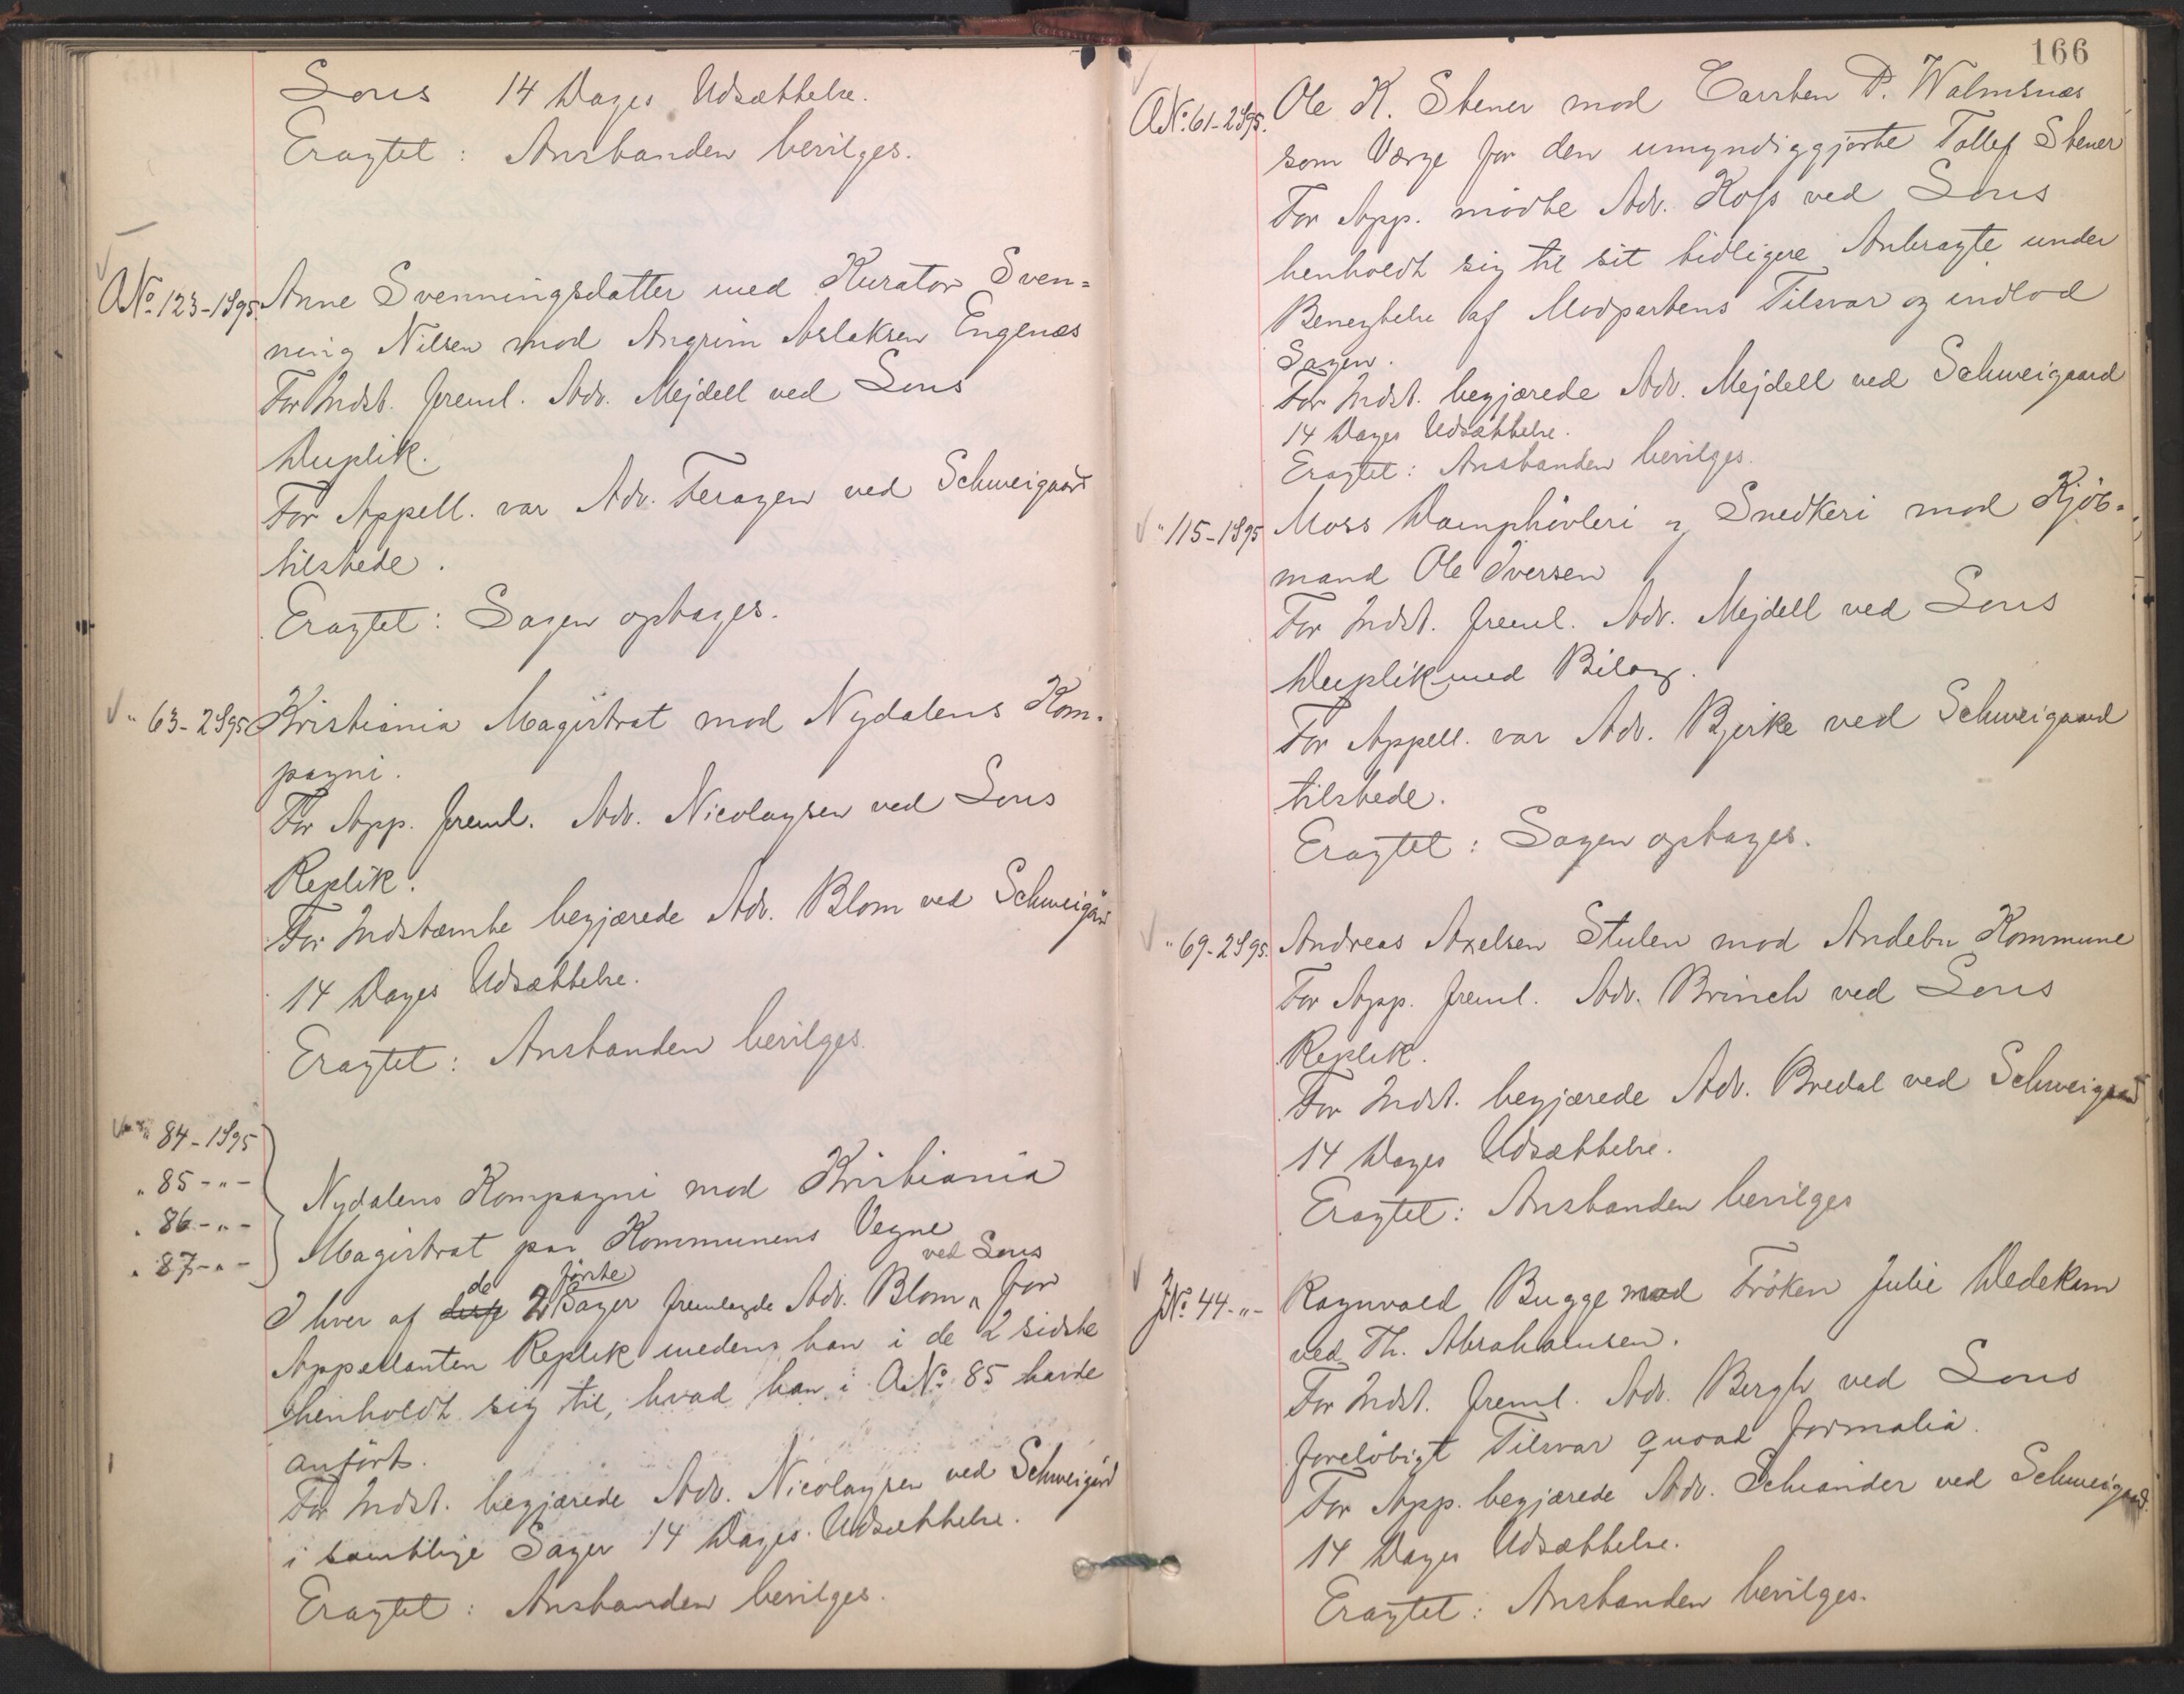 Sous 14 Dages Udsættelse.
Eragtet: Anstanden bevilges.
A No. 123-1895. Anne Svenningsdatter med Kurator Sven=
ning Nilsen mod Angrim Aslaksen Engenæs
For Indst. freml. Adv. Mejdell ved Sous
Duplik.
For Appell. var Adv. Feragen ved Schweigaard
tilstede.
Eragtet: Sagen optages.
" 63-2895 Kristiania Magistrat mod Nydalens Kom-
pagni.
For App. freml. Adv. Nicolaysen ved Sous
Replik.
For Indstæmte begjærede Adv. Blom ved Schweigård
14 Dages Udsættelse.
Eragtet: Anstanden bevilges.
" 84-1895
" 85-"-
" 86-"-
" 87-"-
Nydalens Kompagni mod Kristiania
Magistrat paa Kommunens Vegne
I hver af de 2 første Sager fremlagde Adv. Blom ved Sous for
Appellanten Replik medens han i de 2 sidste
henholdt sig til, hvad han i A No. 85 havde
anført.
For Indst. begjærede Adv. Nicolaysen ved Schweigård
i samtlige Sager 14 Dages Udsættelse.
Eragtet: Anstanden bevilges.
166
A No. 61-2895. Ole K. Stener mod Carsten P. Walmsnæs
som Værge for den umyndiggjorte Tollef Stener
For App. mødte Adv. Hoff ved Sous
henholdt sig til sit tidligere Anbragte under
Benegtelse af Modpartens Tilsvar og indlod
Sagen.
For Indst. begjærede Adv. Mejdell ved Schweigaard
14 Dages Udsættelse.
Eragtet: Anstanden bevilges.
" 115-1895 Moss Damphøvleri og Snedkeri mod Kjøb-
mand Ole Iversen
For Indst. freml. Adv. Mejdell ved Sous
Duplik med Bilag.
For Appell. var Adv. Bjerke ved Schweigaard
tilstede.
Eragtet: Sagen optages.
" 69-2895. Andreas Axelsen Stulen mod Andebu Kommune
For App. freml. Adv. Brinch ved Sous
Replik.
For Indst. begjærede Adv. Bredal ved Schweigaard
14 Dages Udsættelse.
Eragtet: Anstanden bevilges
J No. 44-"- Ragnvald Bugge mod Frøken Julie Wedekam
ved Th. Abrahamsen.
For Indst. freml. Adv. Bergh ved Sous
foreløbigt Tilsvar quoad formalia.
For App. begjærede Adv. Schiander ved Schweigaard
14 Dages Udsættelse.
Eragtet: Anstanden bevilges.